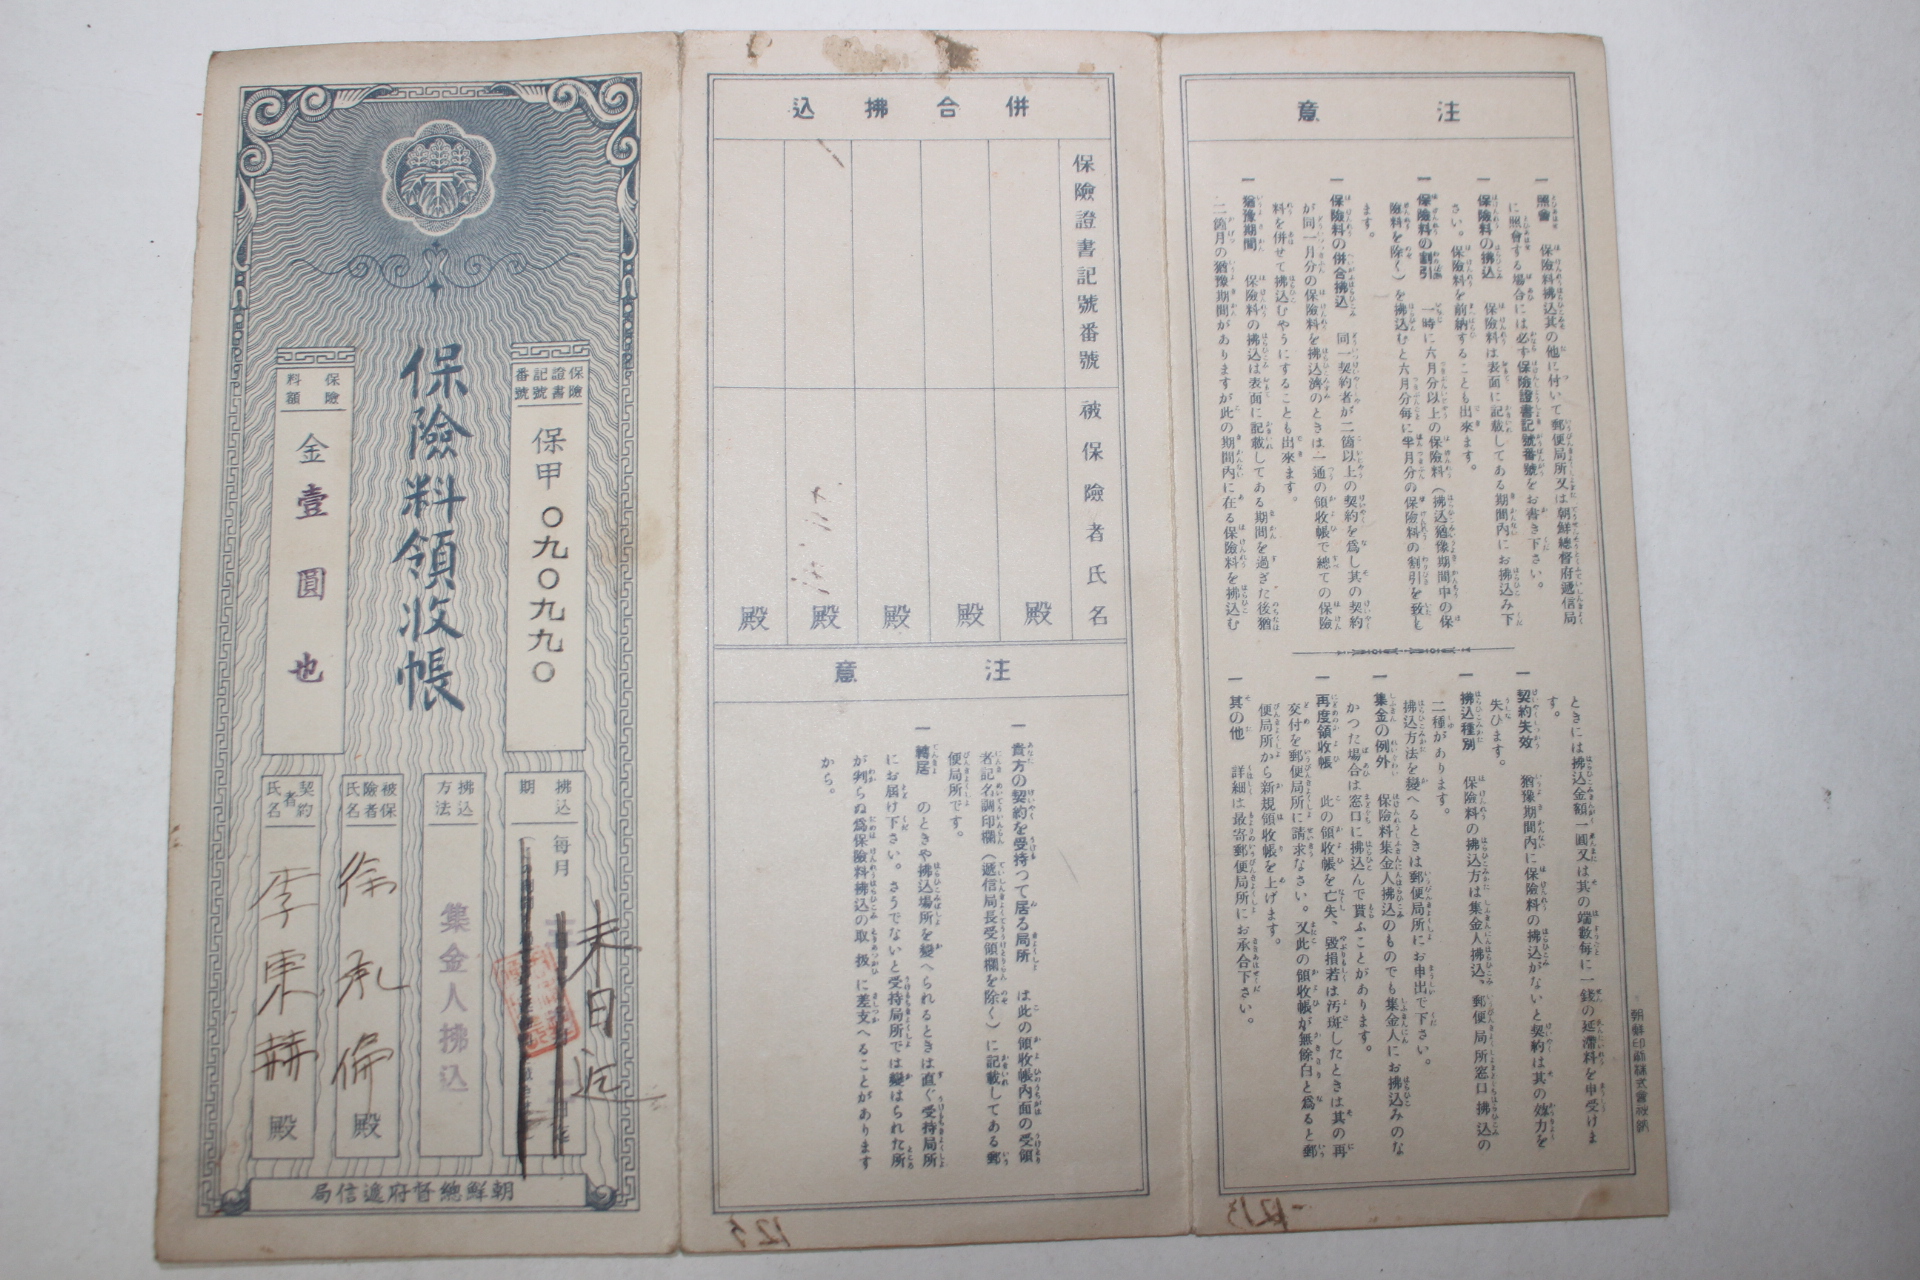 保險料領收帳
保險證書記號番號
保甲〇九〇九九〇
保險料額
金壹圓也
拂込期
每月
末日迄
拂込方法
集金人拂込
被保險者氏名
徐
殿
契約者氏名
李東赫
殿
朝鮮總督府遞信局
併合拂込
保險證書記號番號
被保險者氏名
殿
殿
殿
殿
殿
注意
一 貴方の契約を受持つて居る局所 は此の領收帳內面の受領
者記名調印欄(遞信局長受領欄を除く)に記載してある郵
便局所です。
一 轉居 のときや拂込場所を變へられるときは直ぐ受持局所
にお屆け下さい。さうでないと受持局所では變はられた所
が判らぬ爲保險料拂込の取扱に差支へることがあります
から。
注意
一 照會 保險料拂込其の他に付いて郵便局所又は朝鮮總督府遞信局
に照會する場合には必ず保險證書記號番號をお書き下さい。
一 保險料の拂込 保險料は表面に記載してある期間內にお拂込み下
さい。保險料を前納することも出來ます。
一 保險料の割引 一時に六月分以上の保險料(拂込猶豫期間中の保
險料を除く)を拂込むと六月分每に半月分の保險料の割引を致し
ます。
一 保險料の併合拂込 同一契約者が二箇以上の契約を爲し其の契約
が同一月分の保險料を拂込濟のときは一通の領收帳で總ての保險
料を併せて拂込むやうにすることも出來ます。
一 猶豫期間 保險料の拂込は表面に記載してある期間を過ぎた後猶
二箇月の猶豫期間がありますが此の期間內に在る保險料を拂込む
ときには拂込金額一圓又は其の端數每に一錢の延滯料を申受けま
す。
一 契約失效 猶豫期間內に保險料の拂込がないと契約は其の效力を
失ひます。
一 拂込種別 保險料の拂込方は集金人拂込、郵便局所窓口拂込の
二種があります。
拂込方法を變へるときは郵便局所にお申出で下さい。
一 集金の例外 保險料集金人拂込のものでも集金人にお拂込みのな
かつた場合は窓口に拂込んで貰ふことがあります。
一 再度領收帳 此の領收帳を亡失、毀損若は汚斑したときは其の再
交付を郵便局所に請求なさい。又此の領收帳が無餘白と爲ると郵
便局所から新規領收帳を上げます。
一 其の他 詳細は最寄郵便局所にお承合下さい。
朝鮮印刷株式會社納